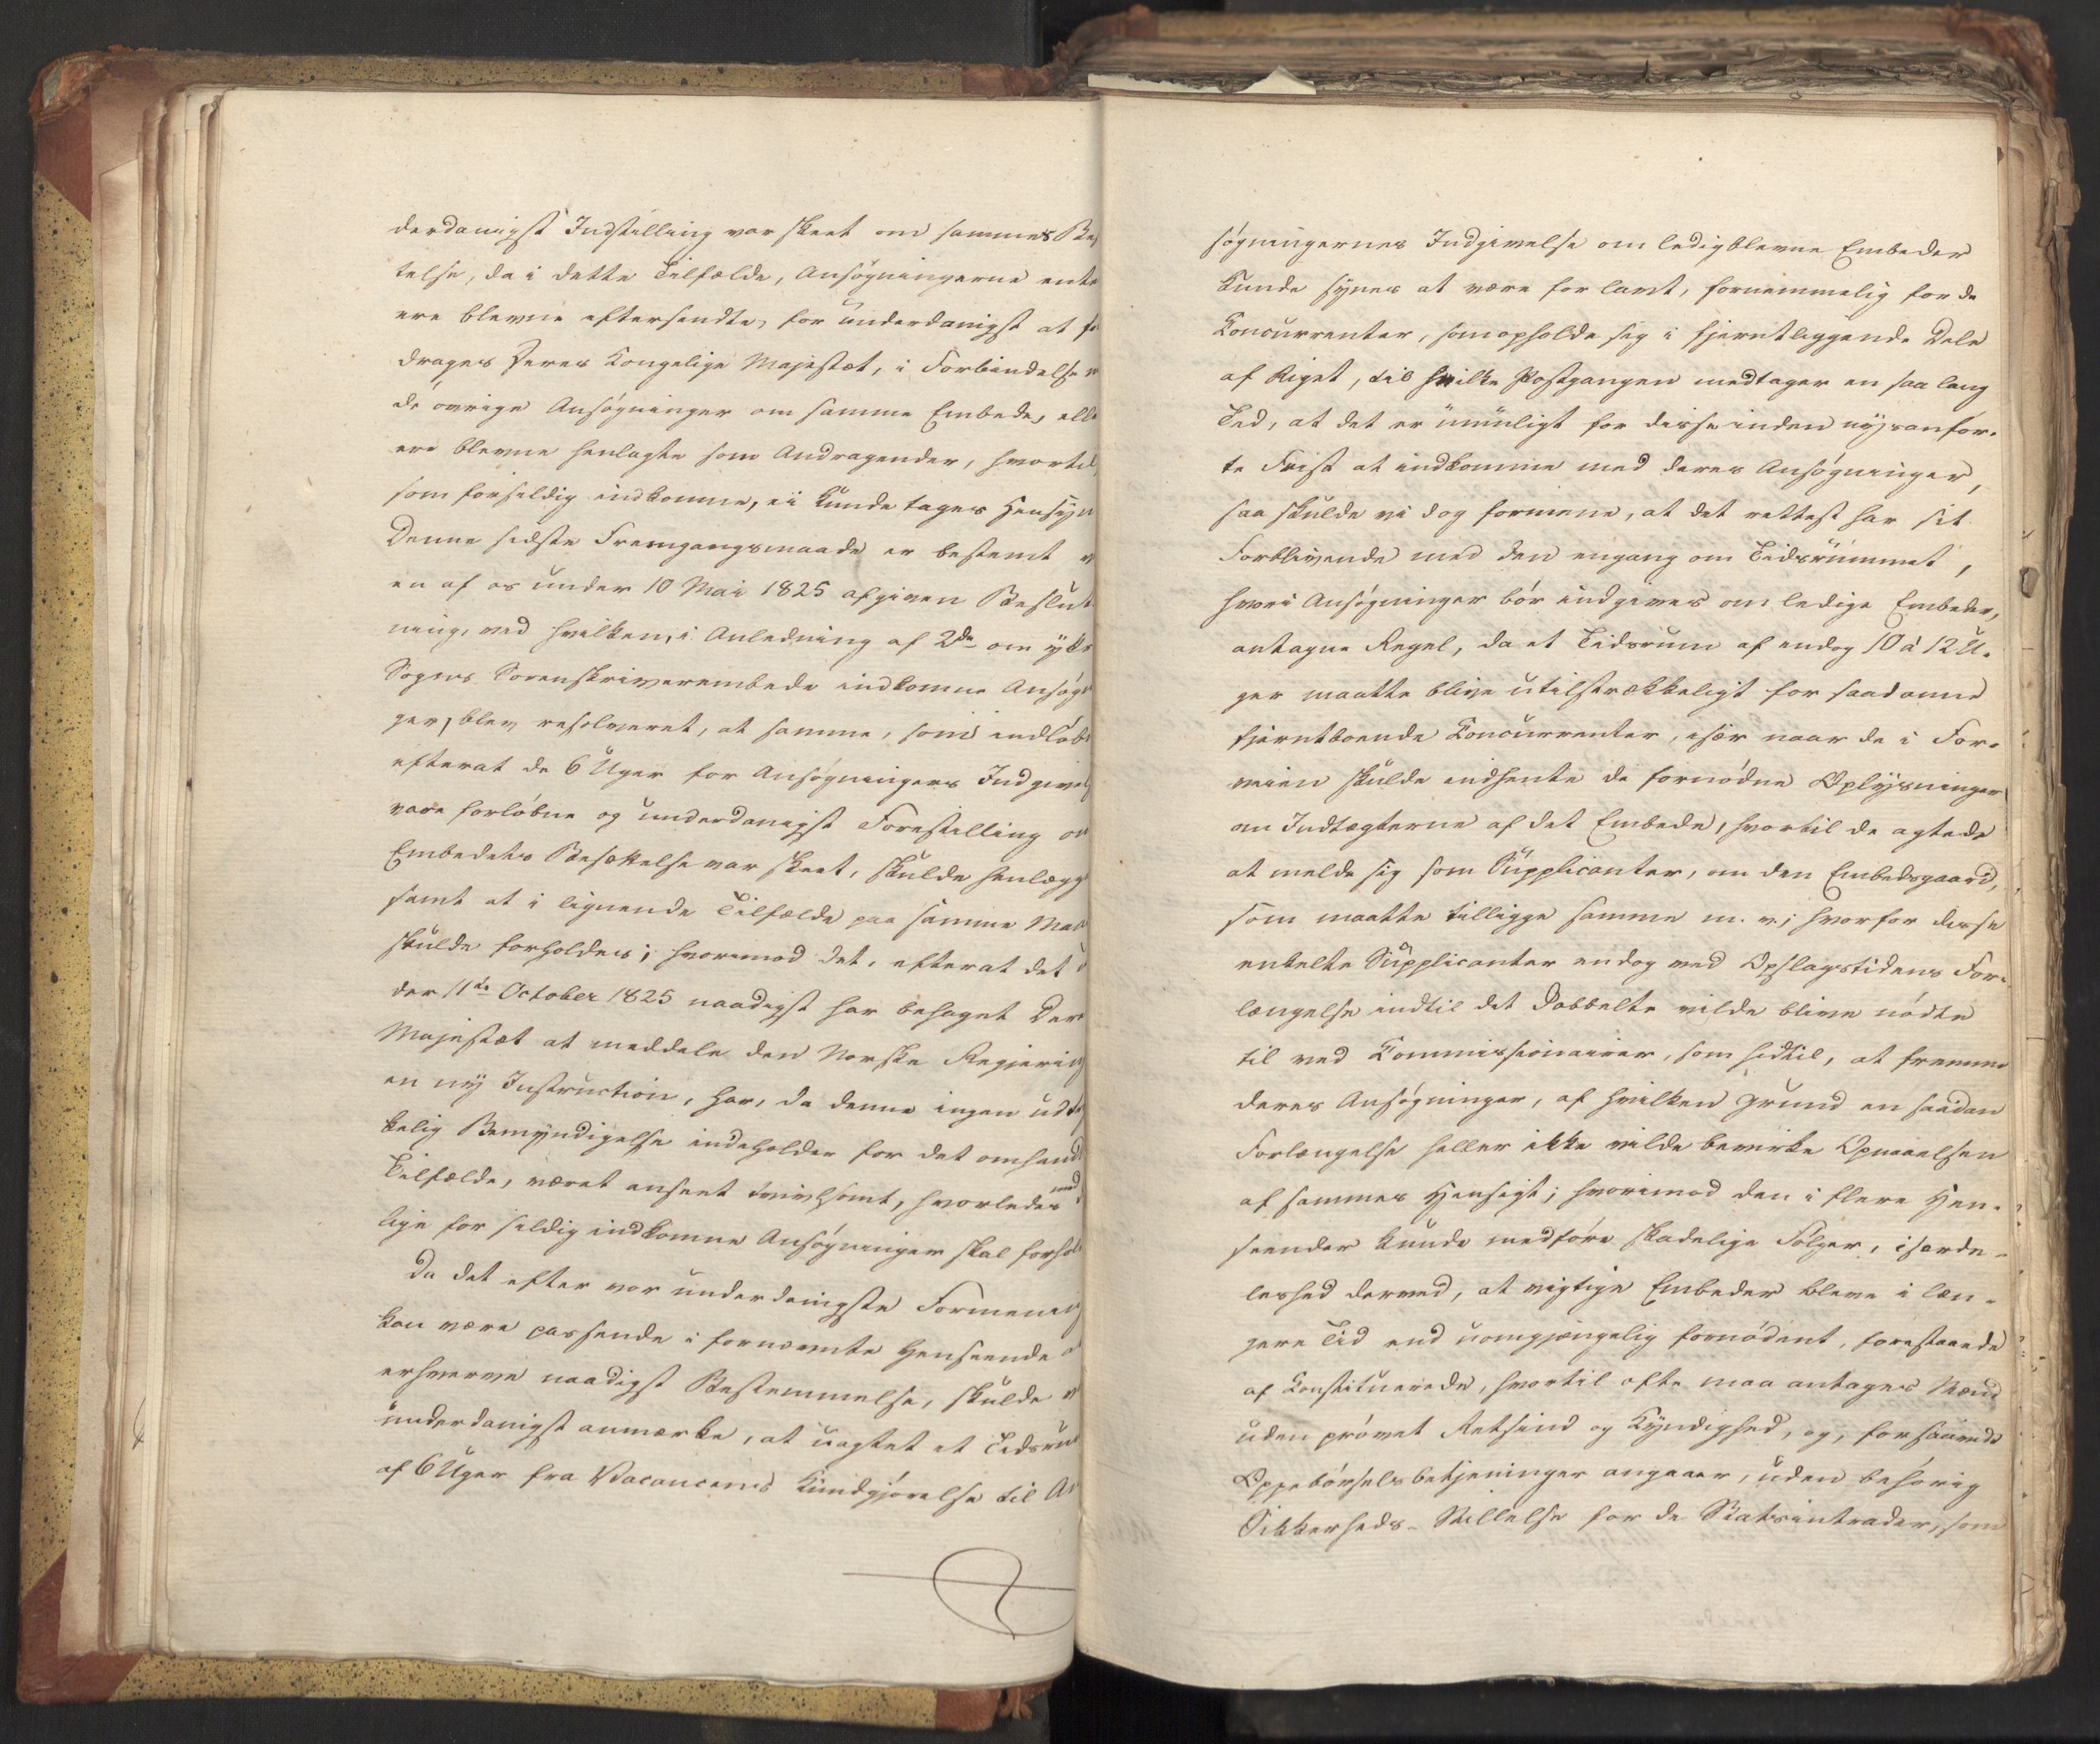 derdanigst Indstilling var skeet om sammes Be
telse, da i dette Tilfælde, Ansøgningerne ente
ere blevne eftersendte, for underdanigst at fo
drages Deres Kongelige Majestæt, i Forbindelse
de øvrige Ansøgninger om samme Embede, elle
ere blevne henlagte som Andragender, hvortil,
som forsildig indkomne, ei kunde tages Hensyn
Denne sidste Fremgangsmaade er bestemt
en af os under 10 Mai 1825 afgiven Beslut
ning, ved hvilken, i Anledning af 2de om
Sogns Sorenskriverembede indkomne Ansøgn
ger, blev resolveret, at samme, som indløb
efterat de 6 Uger for Ansøgningers Indgivels
vare forløbne og underdanigst Forestilling om
Embedets Besættelse var skeet, skulde henlægg
samt at i lignende Tilfælde paa samme Maa
skulde forholdes; hvorimod det, efterat det
der 11te October 1825 naadigst har behaget Der
Majestæt at meddele den Norske Regjering
en ny Instruction, har, da denne ingen udtr
kelig Bemyndigelse indeholder for det omhandl
Tilfælde, været anseet tvivlsomt, hvorledes med
lige for sildig indkomne Ansøgninger skal forhol
Da det efter vor underdanigste Formening
kan være passende i fornævnte Henseende at
erhverve naadigst Bestemmelse, skulde vi
underdanigst anmærke, at uagtet et Tidsrum
af 6 Uger fra Vacancens Kundgjørelse til An
søgningernes Indgivelse om ledigblevne Embeder
kunde synes at være for lavt, fornemmelig for de
Concurrenter, som opholde sig i fjerntliggende Dele
af Riget, til hvilke Postgangen medtager en saa lang
Tid, at det er umuligt for disse inden nysanfør-
te Frist at indkomme med deres Ansøgninger,
saa skulde vi dog formene, at det rettest har sit
Forblivende med den engang om Tidsrummet,
hvori Ansøgninger bør indgives om ledige Embeder,
antagne Regel, da et Tidsrum af endog 10 à 12 U-
ger maatte blive utilstrækkeligt for saadanne
fjerntboende Concurrenter, især naar de i For-
veien skulde indhente de fornødne Oplysninger
om Indtægterne af det Embede, hvortil de agtede
at melde sig som Supplicanter, om den Embedsgaard,
som maatte tilligge samme m. v; hvorfor disse
enkelte Supplicanter endog ved Opslagstidens For-
længelse indtil det Dobbelte vilde blive nødte
til ved Commissionairer, som hidtil, at fremme
deres Ansøgninger, af hvilken Grund en saadan
Forlængelse heller ikke vilde bevirke Opnaaelsen
af sammes Hensigt; hvorimod den i flere Hen-
seender kunde medføre skadelige Følger, i særde-
leshed derved, at vigtige Embeder bleve i læn-
gere Tid end uomgjængelig fornødent, forestaaede
af Constituerede, hvortil ofte maa antages Mænd
uden prøvet Retsind og Kyndighed, og, forsaavidt
Oppebørselsbetjeninger angaaer, uden behørig
Sikkerheds-Stillelse for de Statsintrader, som